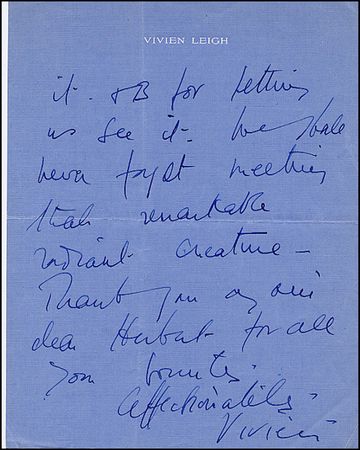 VIVIEN LEIGH
it. & B for letting
us see it. We shall
never forget meeting
that remarkable
radiant creature –
Thank you again
dear Herbert for all
your
affectionately.
Vivien